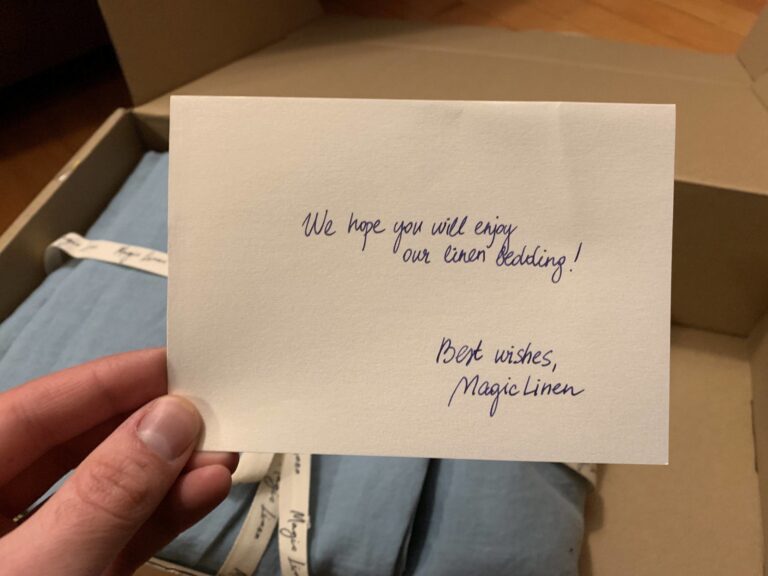 We hope you will enjoy
our linen bedding!
Best wishes,
MagicLinen
Magic Linen
Magic Linen